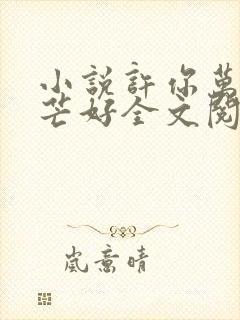 小説許你萬
芒好全文閱
嵐意晴